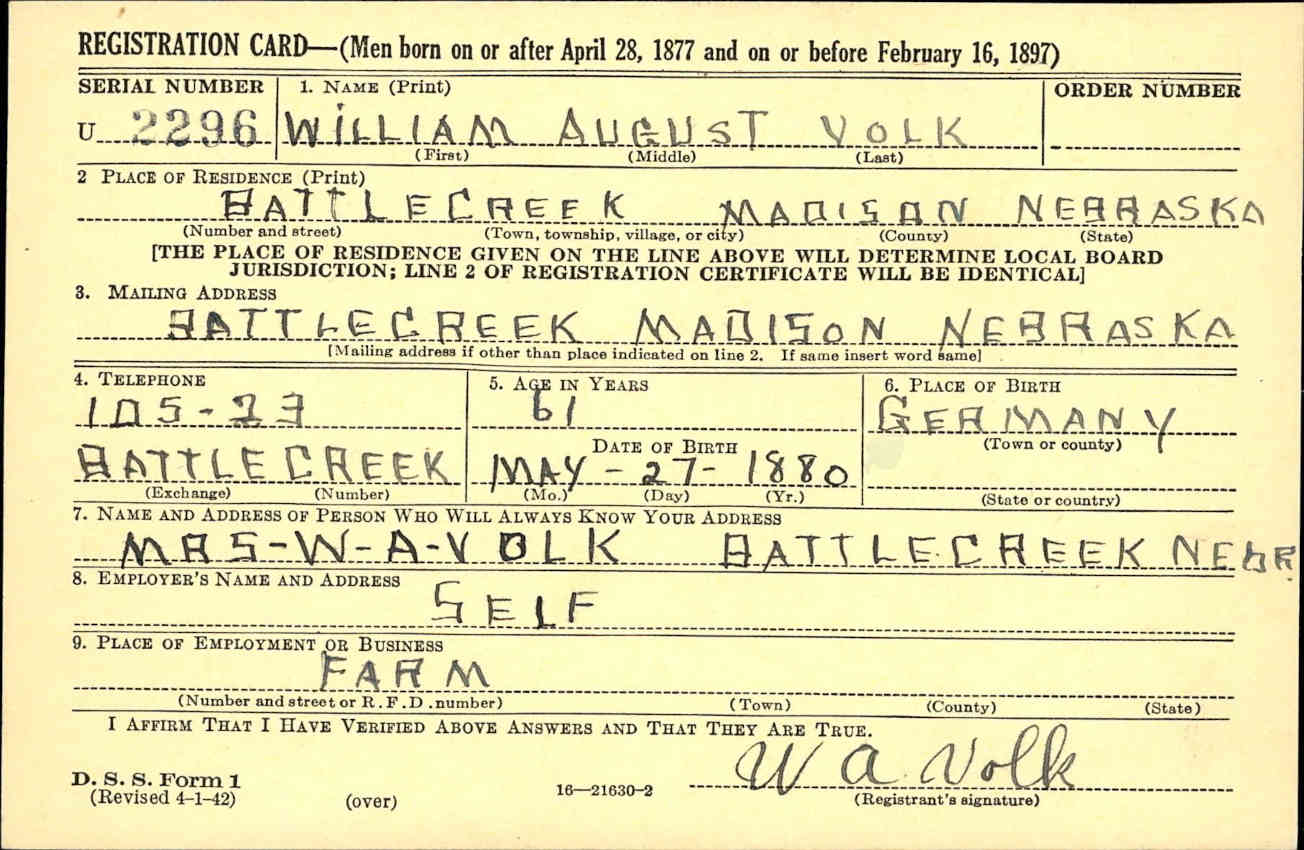 REGISTRATION CARD—(Men born on or after April 28, 1877 and on or before February 16, 1897)
SERIAL NUMBER 1. NAME (Print) ORDER NUMBER
U 2296 WILLIAM AUGUST VOLK
(First) (Middle) (Last)
2 PLACE OF RESIDENCE (Print)
BATTLECREEK MADISON NEBRASKA
(Number and street) (Town, township, village, or city) (County) (State)
[THE PLACE OF RESIDENCE GIVEN ON THE LINE ABOVE WILL DETERMINE LOCAL BOARD
JURISDICTION; LINE 2 OF REGISTRATION CERTIFICATE WILL BE IDENTICAL]
3. MAILING ADDRESS
BATTLECREEK MADISON NEBRASKA
[Mailing address if other than place indicated on line 2. If same insert word same]
4. TELEPHONE 5. AGE IN YEARS 6. PLACE OF BIRTH
105-23 61 GERMANY
DATE OF BIRTH (Town or county)
BATTLECREEK MAY-27-1880
(Exchange) (Number) (Mo.) (Day) (Yr.) (State or country)
7. NAME AND ADDRESS OF PERSON WHO WILL ALWAYS KNOW YOUR ADDRESS
MRS-W-A-VOLK BATTLECREEK NEBR
8. EMPLOYER'S NAME AND ADDRESS
SELF
9. PLACE OF EMPLOYMENT OR BUSINESS
FARM
(Number and street or R.F.D. number) (Town) (County) (State)
I AFFIRM THAT I HAVE VERIFIED ABOVE ANSWERS AND THAT THEY ARE TRUE.
W A. Volk
D. S. S. Form 1
(Revised 4-1-42) (over) 16—21630-2 (Registrant's signature)